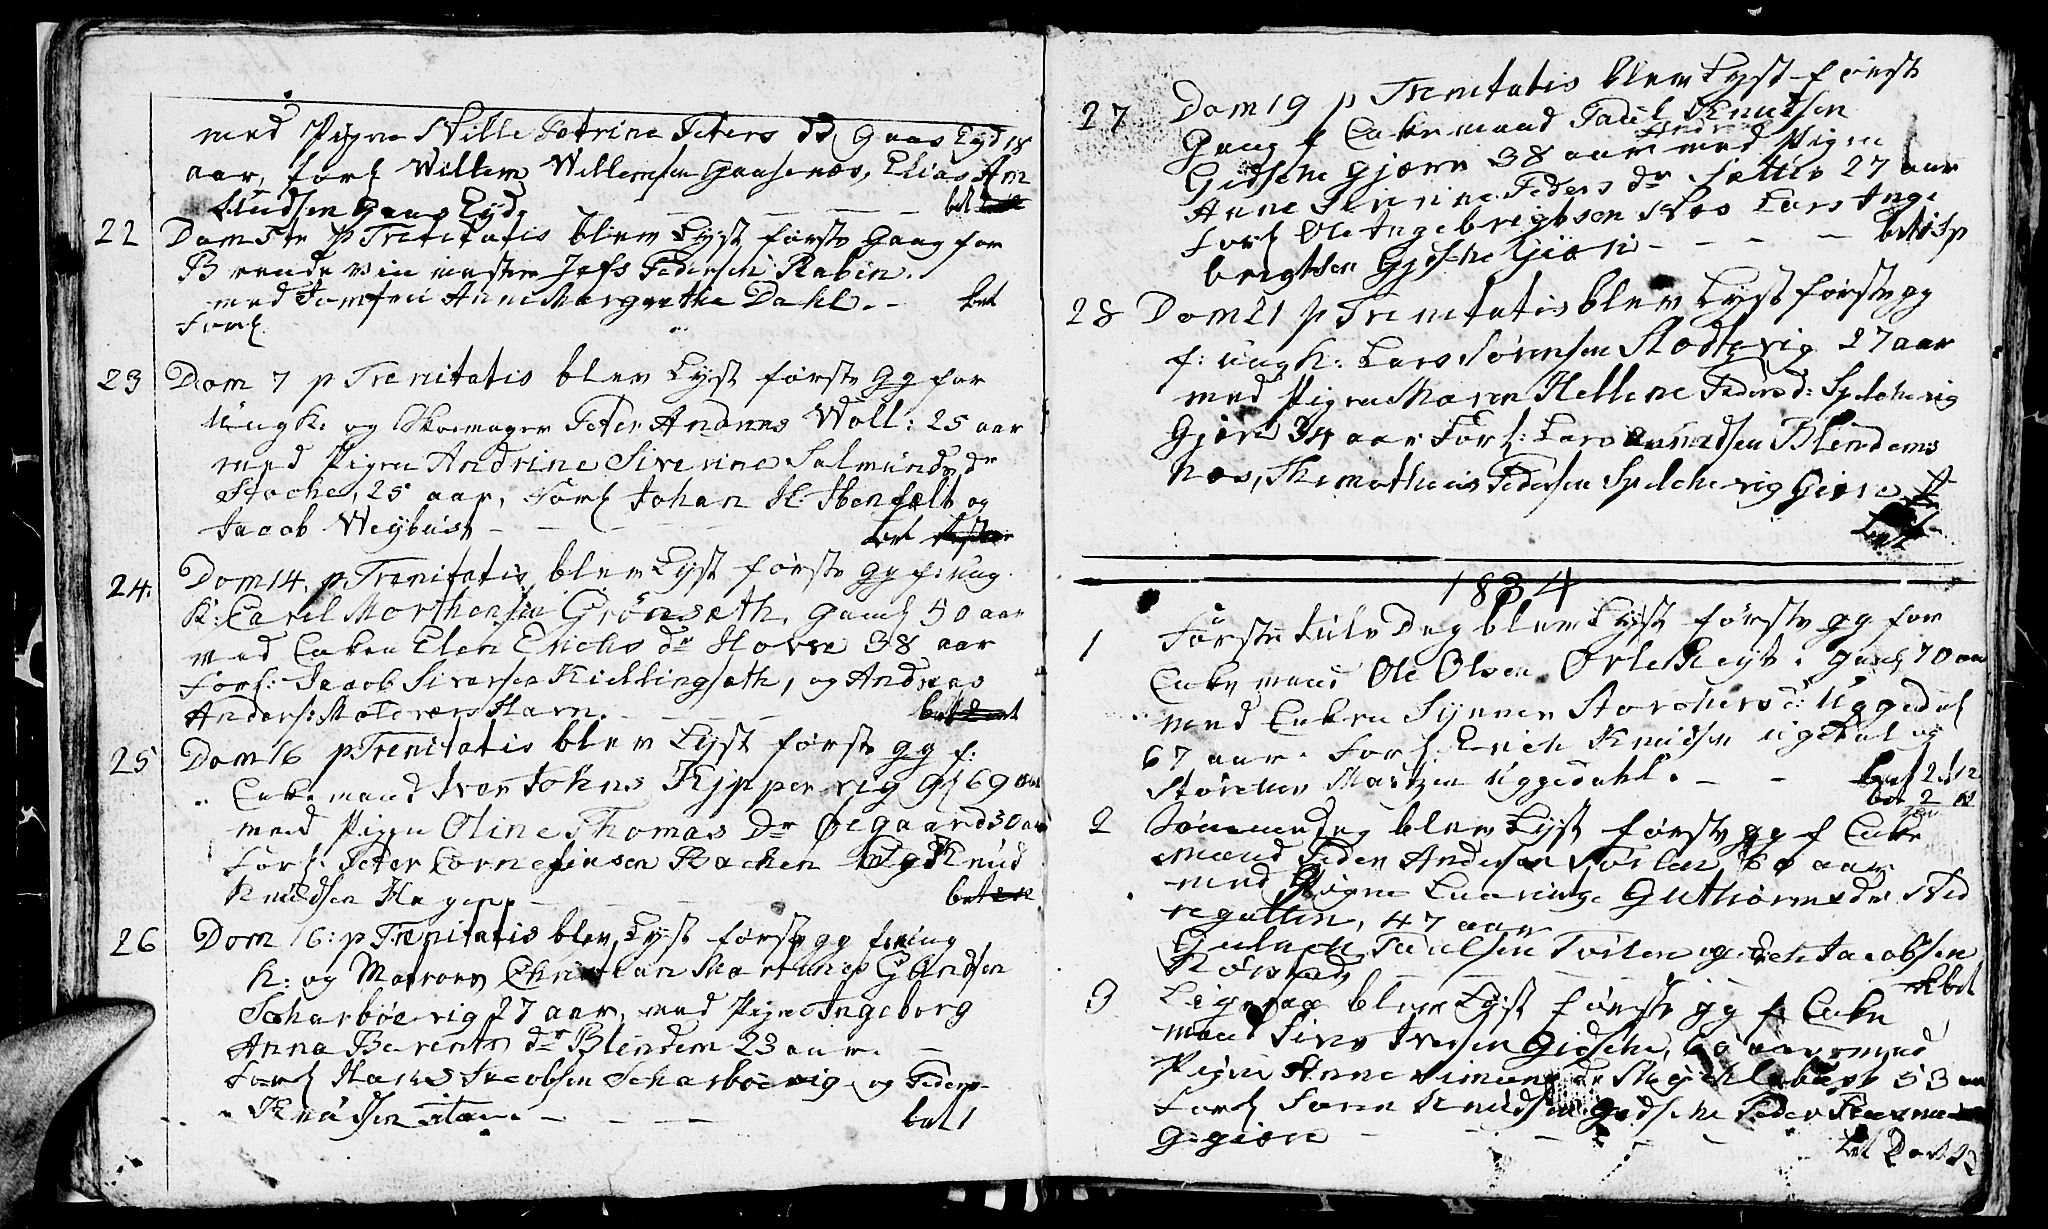 med Pigen Sille Petrine Peters dd Gaas Eyd 18
aar, forl Willem Willemsen Gaasenæs, Elias Am
Knudsen Gaas Eyd. bet
22 Dom 5te p Trenitatis blew Lyst første Gang for
Brendevin mester Jess Pedersen Rabin.
med Jomfru Anne Margrethe Dahl. - bet
Forl
23 Dom 7 p Trenitatis blew Lyst første Gg for
Ungk. og Skoemager Peter Andreas Woll: 25 aar
med Pigen Andrine Siverine Salmunds dr
Stoche, 25 aar, Forl Johan H Ibenfelt og
Jacob Weybust - bet
24. Dom 14. p. Trenitatis blew Lyst første gg f: ung
K: Carel Morthensen Grönsæth, gaml 50 aar
med Enken Elen Erichs dr Horse 38 aar
Forl: Jacob Siversen Kiellingsæth, og Andreas
Anders: Moldværs Havn. bet
25 Dom 16 p Trenitatis blew Lyst første gg f:
Enkemand Iver Johns Kjpperwig gl 69 aar
med Pigen Oline Thomas Dr Øegaard 30 aar
Forl: Peter Corneliusen Bachen og Knud
Knudsen Hagen. bet
26 Dom 16: p Trenitatis blew Lyst første gg for ung
k: og Matroes Christian Martinus Knudsen
Scharbøevig 27 aar, med Pigen Ingeborg
Anna Berents dr Blendem 23 aar. -
Forl Hans Jacobsen Scharbøevig og Peder
Knudsen - bet 1
27 Dom 19 p Trenitatis blew Lyst første
Gang f Enkemand Paul Knudsen
Gidsche Gjære 38 aar med Pigen
Anne Perine Peders dr Sættre 27 aar
Forl Ole Ingebrigtsen Næs Lars Inge
brigtsen Gjdsche Giøre - bet 1 Sp
28 Dom 21 p Trenitatis blew Lyst første gg
f: ungk: Lars Sørensen Slottevig 27 aar
med Pigen Maren Hellene Peders d: Spelchevig
Gjøre 34 aar Forl: Lars Knudsen Blendems
næs, Themotheus Pedersen Spelchevig Giøre
bet
1834
1 Første Jule Dag blew Lyst første gg for
Enkemand Ole Olsen Ørleskegt. gaml 70 aar
med Enken Synnev Storchers d: Uggedal
67 aar. Forl Erich Knudsen Ugedal og
Størcher Uggedahl. - bet 2
bet 2
2 blew Lyst første gg f Enke
mand Peder Andersen 60 aar
med Pigen Guthorms dr Ned
regotten, 47 aar
Paulsen og Jacobsen
bet
3 Ligesaa blew Lyst første gg f Enke
mand Sivert Iversen Gidsche, 60 aar med
Pigen Anne Simuns dr 53 aar
Forl Knudsen Gidsche Peder
Giøre - bet